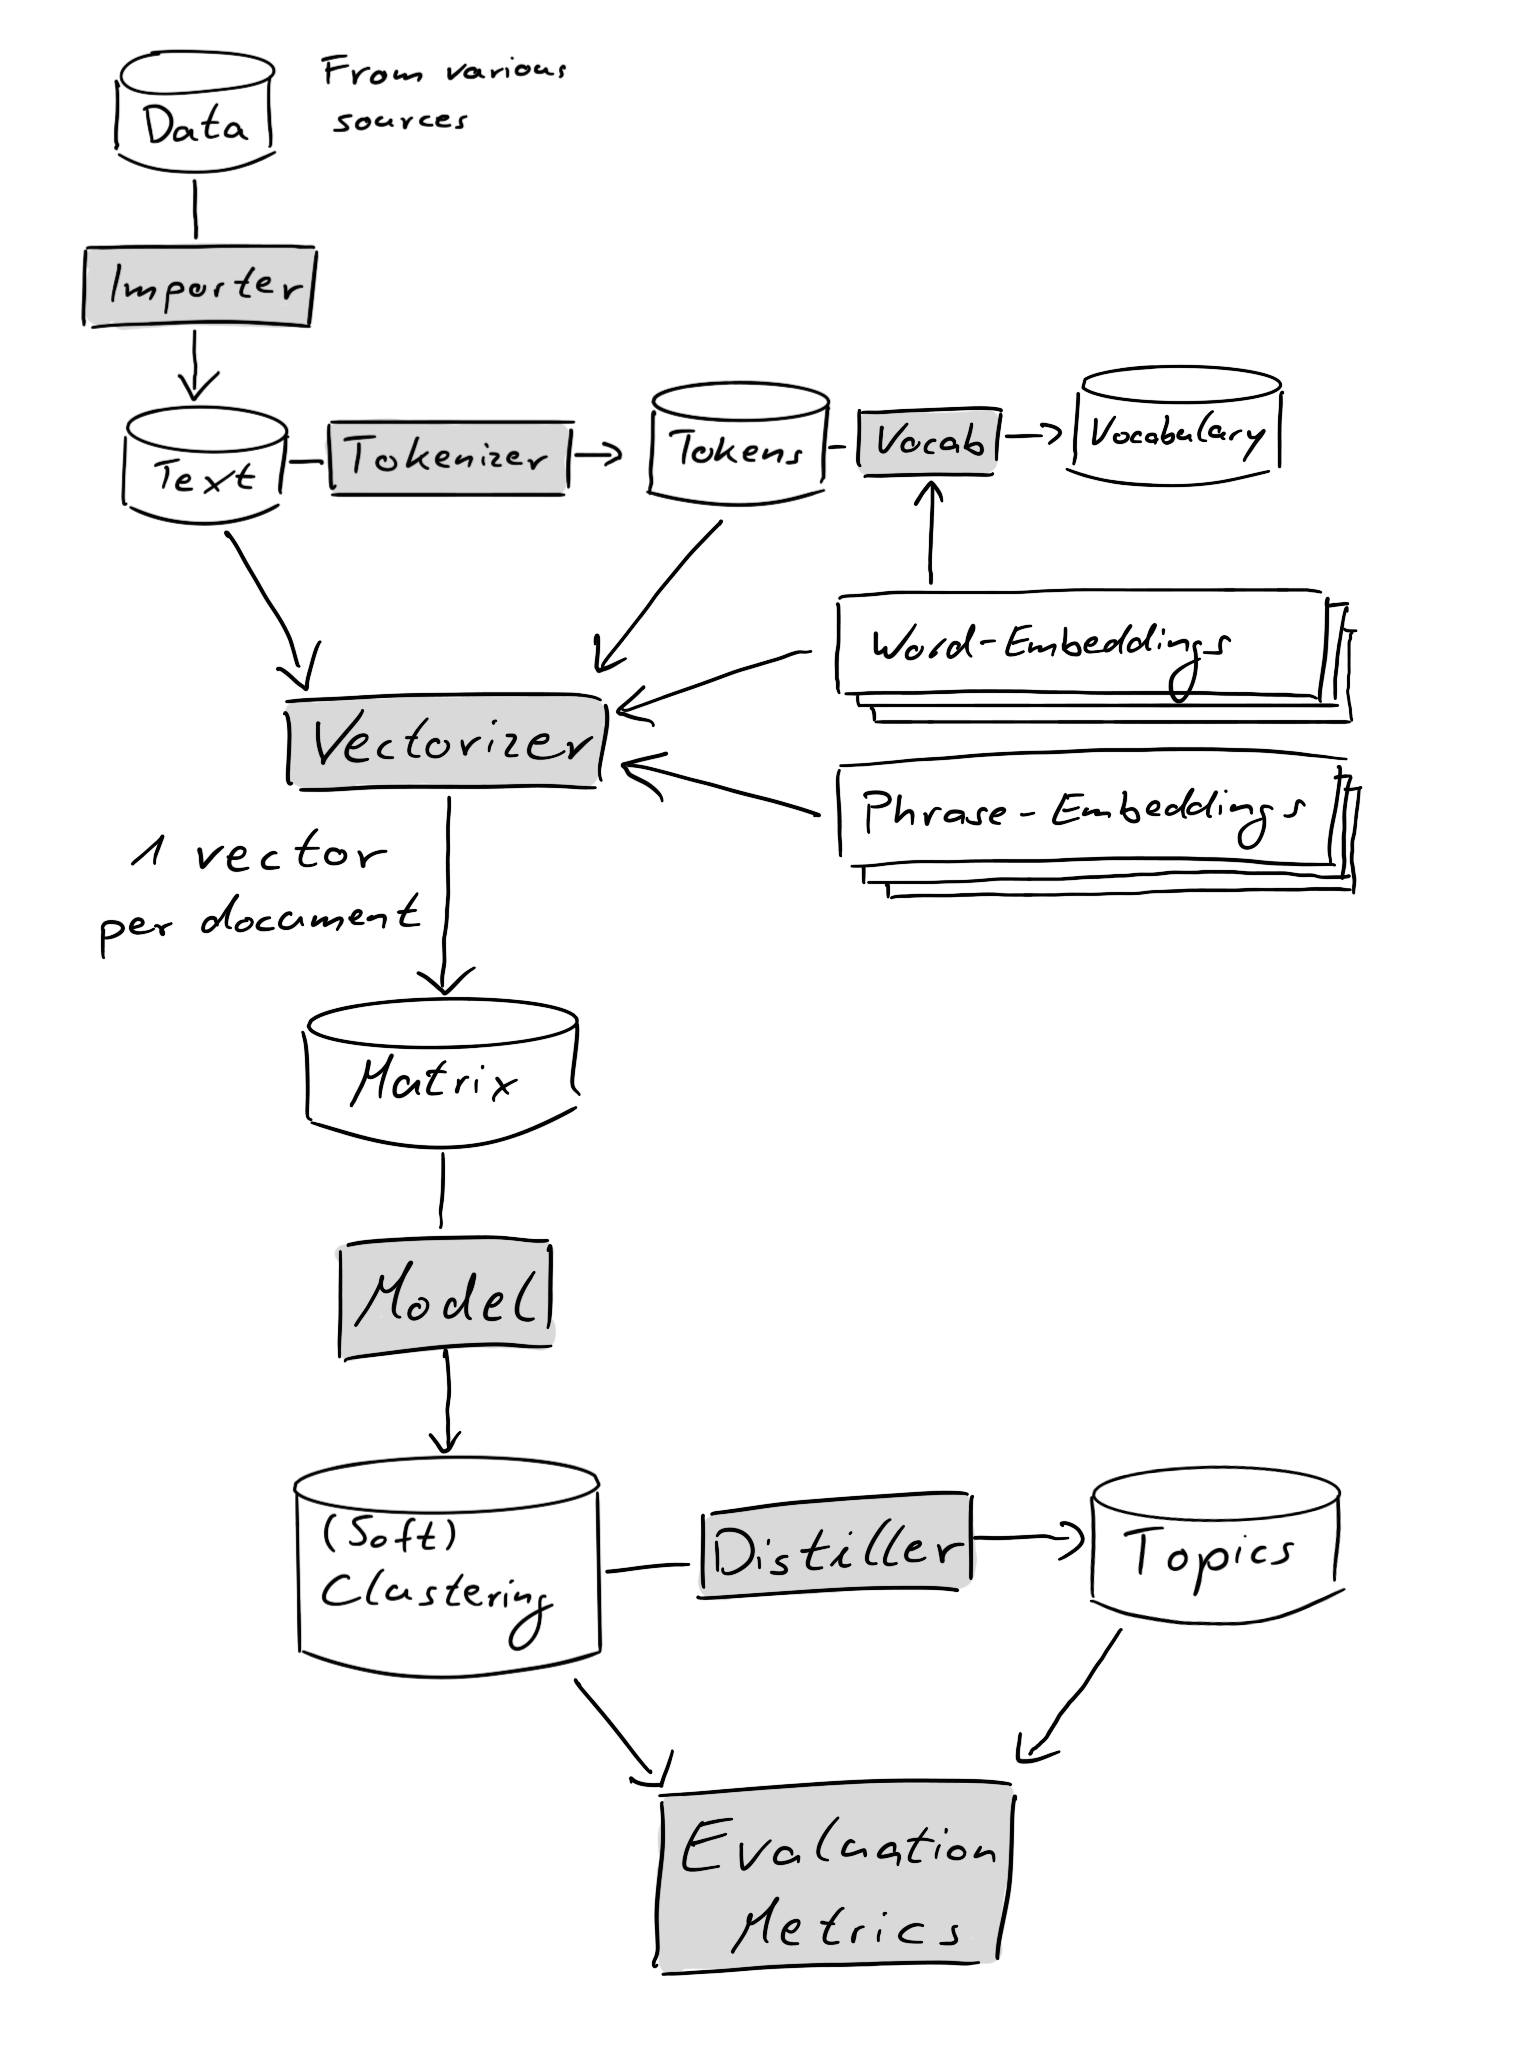 Data
From various
sources
Importer
Text
Tokenizer
Tokens
Vocab
Vocabulary
Word-Embeddings
Vectorizer
Phrase-Embeddings
1 vector
per document
Matrix
Model
(Soft)
Clustering
Distiller
Topics
Evaluation
Metrics